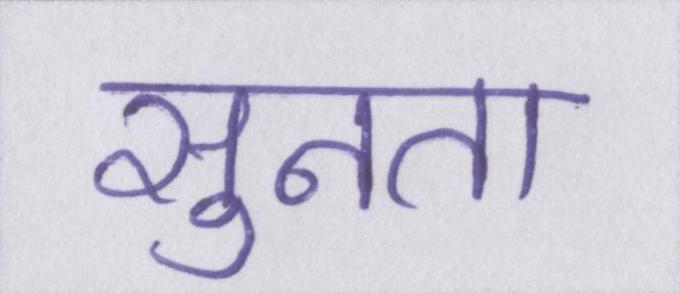 सुनता